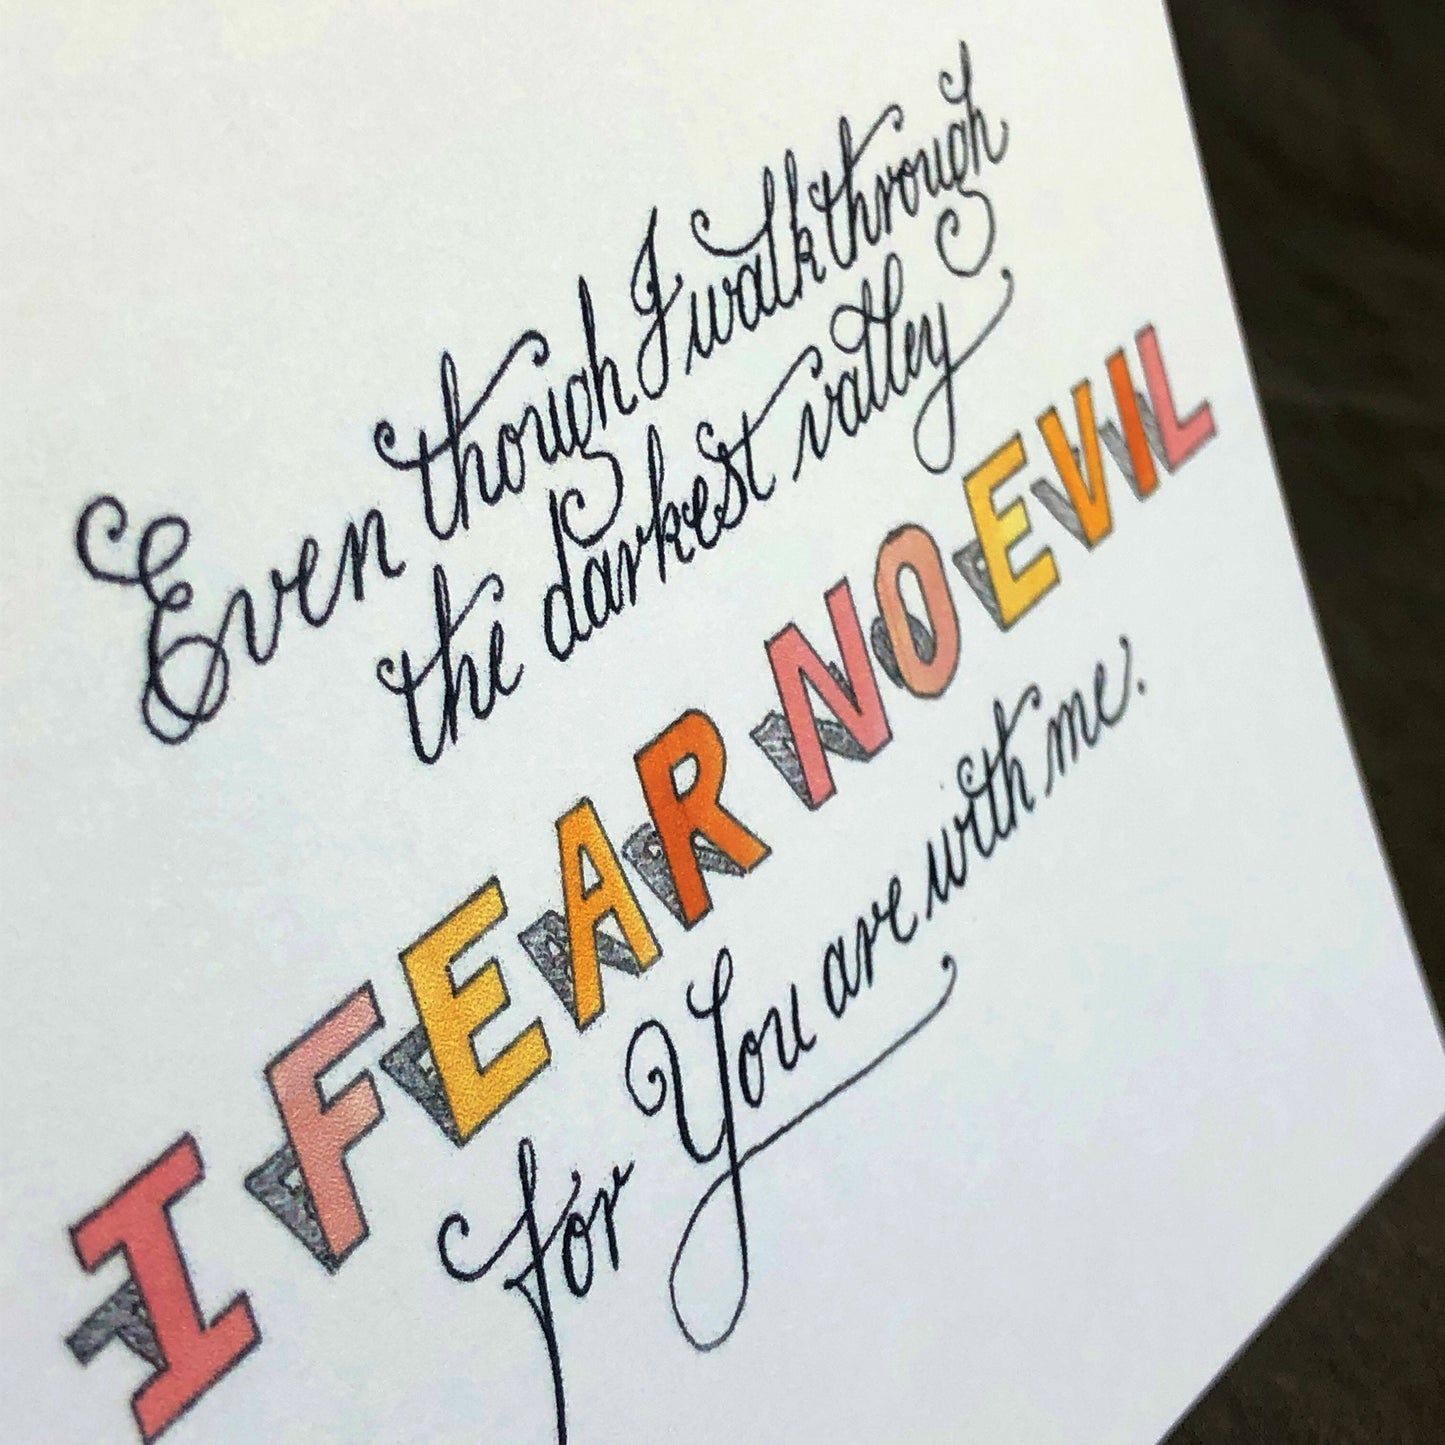 Even though I walk through
the darkest valley
I FEAR NO EVIL
for You are with me.